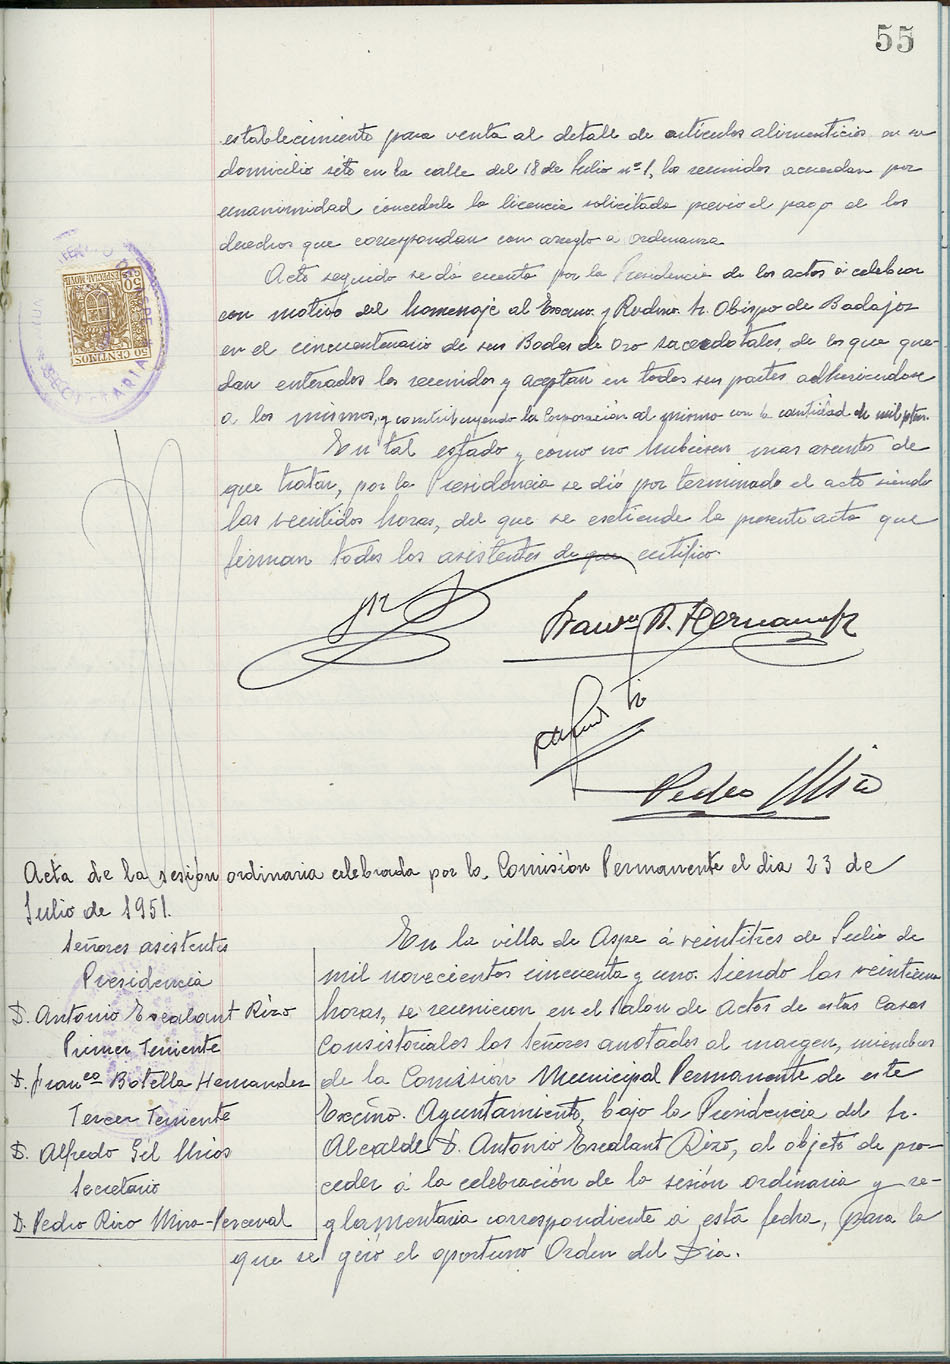 55
establecimiento para venta al detalle de artículos alimenticios en su
domicilio sito en la calle del 18 de Julio nº 1, los reunidos acuerdan por
unanimidad concederle la licencia solicitada previo el pago de los
derechos que correspondan con arreglo a Ordenanza
Acto seguido se dá cuenta por la Presidencia de los actos á celebrar
con motivo del homenaje al Excmo. y Rvdmo. Sr. Obispo de Badajoz
en el cincuentenario de sus Bodas de Oro sacerdotales, de los que que-
dan enterados los reunidos y aceptan en todas sus partes adhiriendose
a los mismos, y contribuyendo la Corporación al mismo con la cantidad de mil ptas.
En tal estado y como no hubiesen mas asuntos de
que tratar, por la Presidencia se dió por terminado el acto siendo
las veintidos horas, del que se extiende la presente acta que
firman todos los asistentes de que certifico.
ESPECIAL MOVIL
50 CENTIMOS
SECRETARIA
Franco B. Hernandez
Pedro Miro
Acta de la sesión ordinaria celebrada por la Comisión Permanente el dia 23 de
Julio de 1951.
Señores asistentes
Presidencia
D. Antonio Escalant Rizo
Primer Teniente
D. Franco Botella Hernandez
Tercer Teniente
D. Alfredo Gil Mrios
Secretario
D. Pedro Rizo Mira-Perceval
En la villa de Aspe á veintitres de Julio de
mil novecientos cincuenta y uno. Siendo las veintiuna
horas, se reunieron en el Salon de Actos de estas Casas
Consistoriales los Señores anotados al margen, miembros
de la Comisión Municipal Permanente de este
Excmo. Ayuntamiento, bajo la Presidencia del Sr.
Alcalde D. Antonio Escalant Rizo, al objeto de pro-
ceder á la celebración de la sesión ordinaria y re-
glamentaria correspondiente á esta fecha, para la
que se giró el oportuno Orden del Dia.